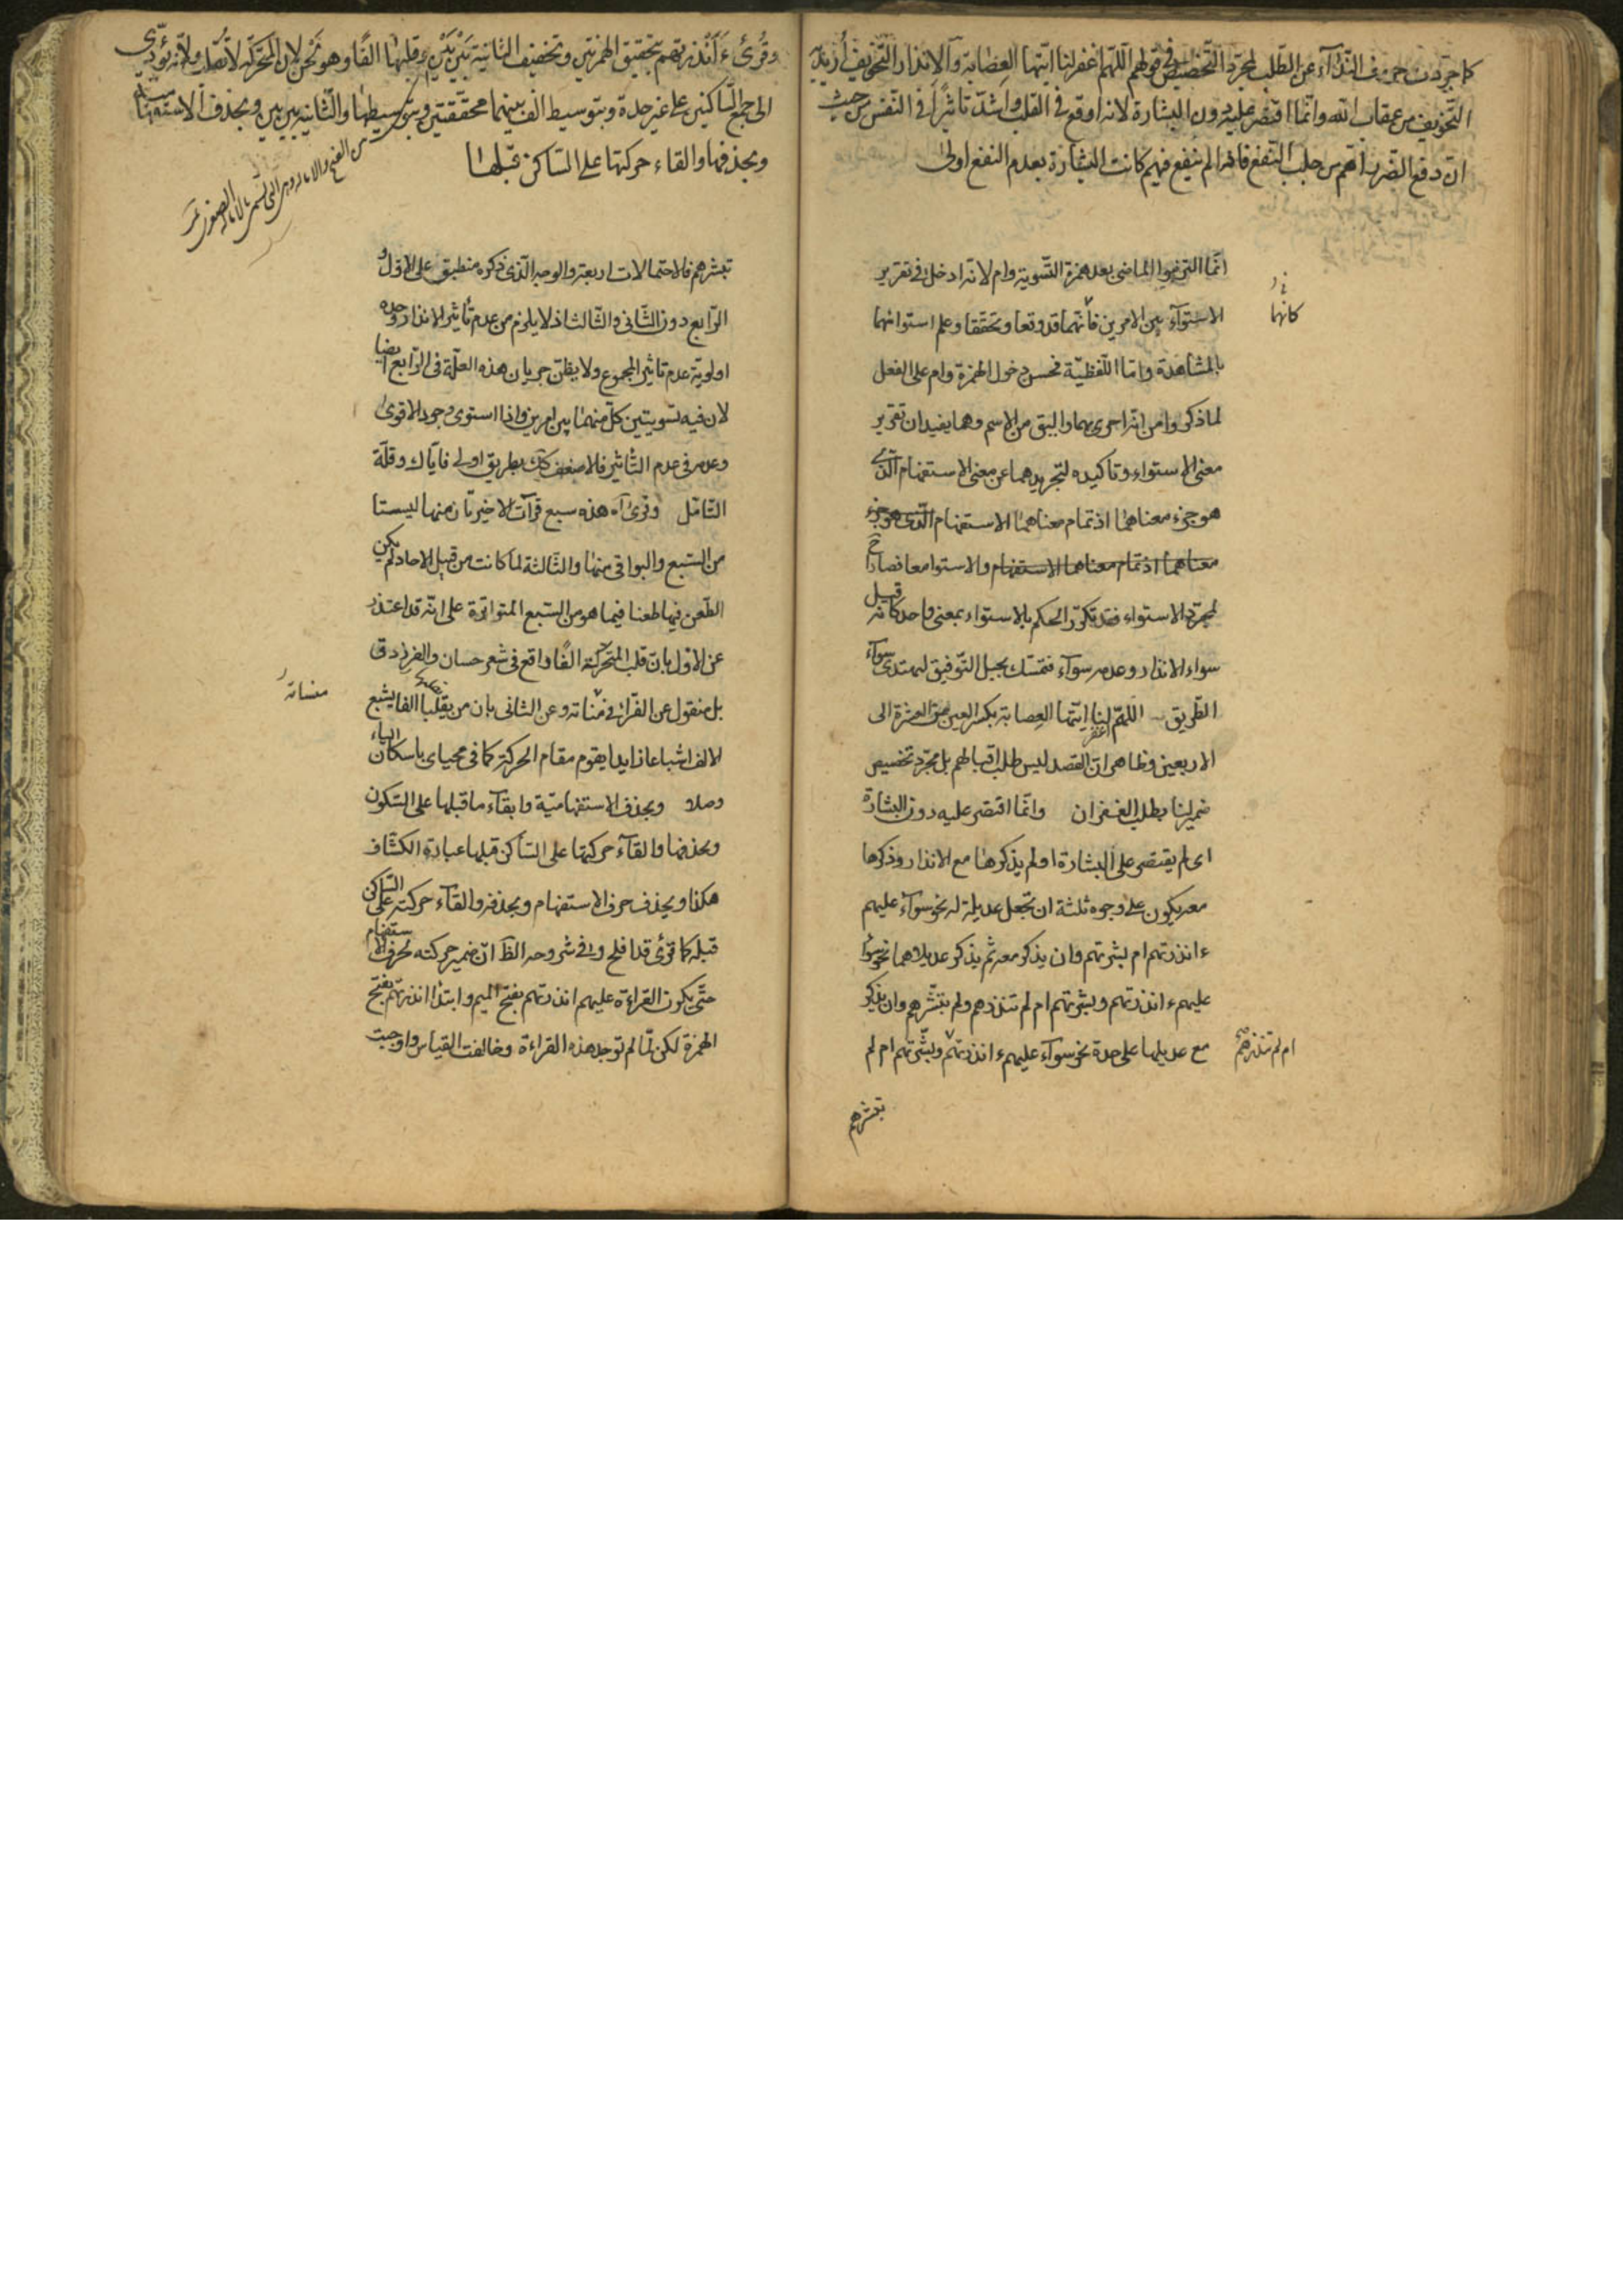 كما جرّدت حروف النّدآء عن الطّلب لمجرّد التّخصيص في قولهم اللّهمّ اغفر لنا ايّتها العِصابة وَالانذار التّخويف اُريد به
التّخويف من عقاب الله وانّما اقتصر عليه دون البشارة لانه اوقع في القلب واشدّ تاثيرًا في النّفس من حيث
انّ دفع الضّرر اهمّ من جلب النّفع فاذا لم ينفع فيهم كانت البشارة بعدم النفع اولى
انّما التزموا الماضى بعد همزة التّسوية وام لانّه ادخل في تقرير
الاستوآء بين الامرين فانّهما قد وقعا وتحقّقا وعلم استوائهما
كانهما
بالمشاهدة وامّا اللّفظيّة فحسن دخول الهمزة وام على الفعل
لما ذكر وامن انّه احرى بهما واليق من الاسم وهما يفيدان تقرير
معنى الاستواء وتاكيده لتجريدهما عن معنى الاستفهام الّذى
هو جزء معناهما اذ تمام معناهما الاستفهام الّذى هو جزء
معناهما اذ تمام معناهما الاستفهام والاستوا معا فصارا
لمجرّد الاستواء فقد تكرّر الحكم بالاستواء بمعنى واحد كانه قيل
سواء الانذار وعدمه سوآء فتمسّك بحبل التّوفيق ليهتدى سوآء
الطّريق اللّهمّ اغفر لنا ايّتها العِصابة بكسر العين من العشرة الى
الاربعين وظاهر انّ القصد ليس طلب اقبالهم بل مجرّد تخصيص
ضمير لنا بطلب الغفران وانّما اقتصر عليه دون البشارة
اى لم يقتصر على البشارة او لم يذكرها مع الانذار وذكرها
معه يكون على وجوه ثلثة ان تجعل عديلة له نحو سوآء عليهم
ءانذرتهم ام بشرتهم وان يذكر معه ثم يذكر عديلاهما نحو سوآء
عليهم ءانذرتهم وبشرتهم ام لم تنذرهم ولم تبشّرهم وان يذكر
مع عديلها على حدة نحو سوآء عليهم ءانذرتهم وبشّرتهم ام لم
ام لم تنذرهم
تبشرهم
وقُرئ ءَاَنْذرتهم بتحقيق الهمزتين وتخفيف الثانية بَيْنَ بَيْنَ وقلبها الفًا وهو لحن لان المتحرّكة لا تُقلب ولانّه يؤدّى
الى جمع السّاكنين على غير حدة وبتوسيط الف بينهما محققتين وبتوسيطها والثّانية بين بين وبحذف الاستفهاميّة
وبحذفها والقاء حركتها على السّاكن قبلها
تبشرهم فالاحتمالات اربعة والوجه الّذى ذكره منطبق على الاوّل و
الرّابع دون الثّانى والثّالث اذ لا يلزم من عدم تأثير الانذار وحده
اولوية عدم تاثير المجموع ولا يظنّ جريان هذه العلّة في الرّابع ايضا
لان فيه تسويتين كلّ منهما بين امرين واذا استوى وجود الاقوى
وعدمه في عدم التّأثير فالاضعف كك بطريق اولى فايّاك وقلّة
التّامّل وقرئ آه هذه سبع قرآآت الاخيرتان منها ليستا
من السّبع والبواقى منها والثّالثة لمّا كانت من قبيل الاحاد لم يكن
الطّعن فيها طعنا فيما هو من السّبع المتواترة على انّه قد اعتذر
عن الاوّل بانّ قلب المتحرّكة الفًا واقع في شعر حسان والفرزدق
بل منقول عن القرّاء في منساته وعن الثانى بان من يقلبها الفا يشبع
منساته
الالف اشباعا زايدا يقوم مقام الحركة كما في محياى باسكان الياء
وصلا وبحذف الاستفهاميّة وابقآء ما قبلها على السّكون
وبحذفها والقآء حركتها على السّاكن قبلها عبارة الكشّاف
هكذا وبحذف حرف الاستفهام وبحذفه والقآء حركته على السّاكن
قبله كما قرئ قد افلح وفى شروحه الظّ انّ ضمير حركته لحرف الاستفهام
حتّى يكون القراءة عليهم انذرتهم بفتح الميم وابتدا انذرتهم بفتح
الهمزة لكن لمّا لم توجد هذه القراءة وخالفت القياس واوجبت